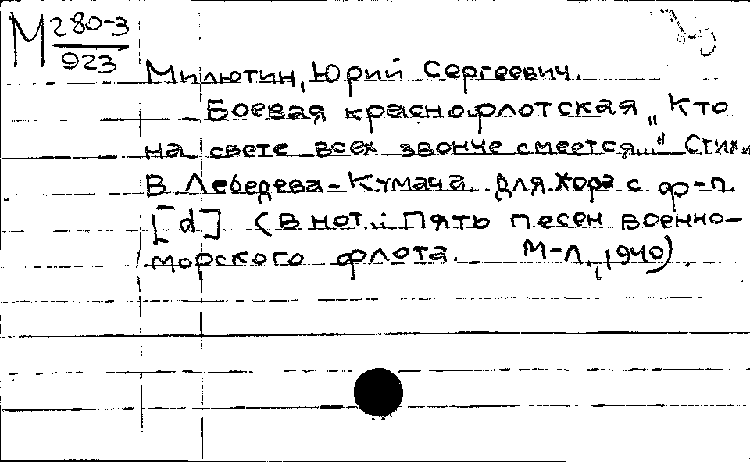 М 280-3
923
Милютин, Юрий Сергеевич.
Боевая краснофлотская „Кто
на свете всех звонче смеется..." Стихи
В. Лебедева-Кумача. Для хора с ф-п.
[d] (В нот.: Пять песен военно-
морского флота. М-Л., 1940).